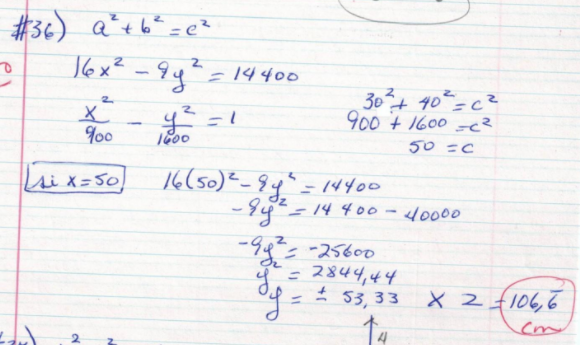 #36) a² + b² = c²
16x² - 9y² = 14400
x²/900 - y²/1600 = 1
30² + 40² = c²
900 + 1600 = c²
50 = c
si x = 50
16(50)² - 9y² = 14400
-9y² = 14 400 - 40000
-9y² = -25600
y² = 2844,44
y = ± 53,33 x 2 = 106,6̅
cm
4